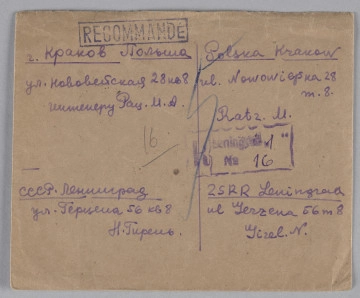 RECOMMANDÉ
г. Краков Польша
ул. Нововейская 28 кв 8
инженеру Рац. М. А.
16
СССР. Ленинград
ул. Герцена 56 кв 8
Н. Гирель.
Polska Krakow
ul. Nowowiejska 28
m. 8.
Ratz. M.
Leningrad 1
№ 16
ZSRR Leningrad
ul Gerzena 56 m 8
Girel. N.